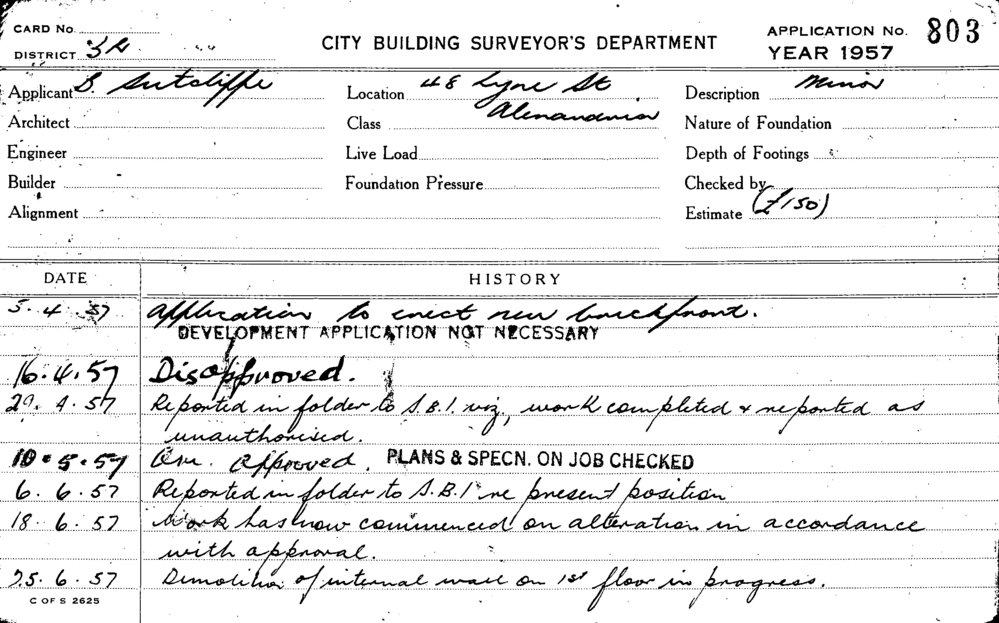 CARD No.
DISTRICT 3A
CITY BUILDING SURVEYOR'S DEPARTMENT
APPLICATION No. 803
YEAR 1957
Applicant S. Sutcliffe
Location 48 Lyne St
Alexandria
Description Minor
Architect
Class
Nature of Foundation
Engineer
Live Load
Depth of Footings
Builder
Foundation Pressure
Checked by
Alignment
Estimate (£150)
DATE HISTORY
5. 4 57 Application to erect new brickfront.
DEVELOPMENT APPLICATION NOT NECESSARY
16.4.57 Disapproved.
29. 4. 57 Reported in folder to S.B.I. viz, work completed & reported as
unauthorised.
10.5.57 Approved. PLANS & SPECN. ON JOB CHECKED
6. 6. 57 Reported in folder to S.B.I re present position
18. 6. 57 Work has now commenced on alteration in accordance
with approval.
25. 6. 57 Demolition of internal wall on 1st floor in progress.
C OF S 2625